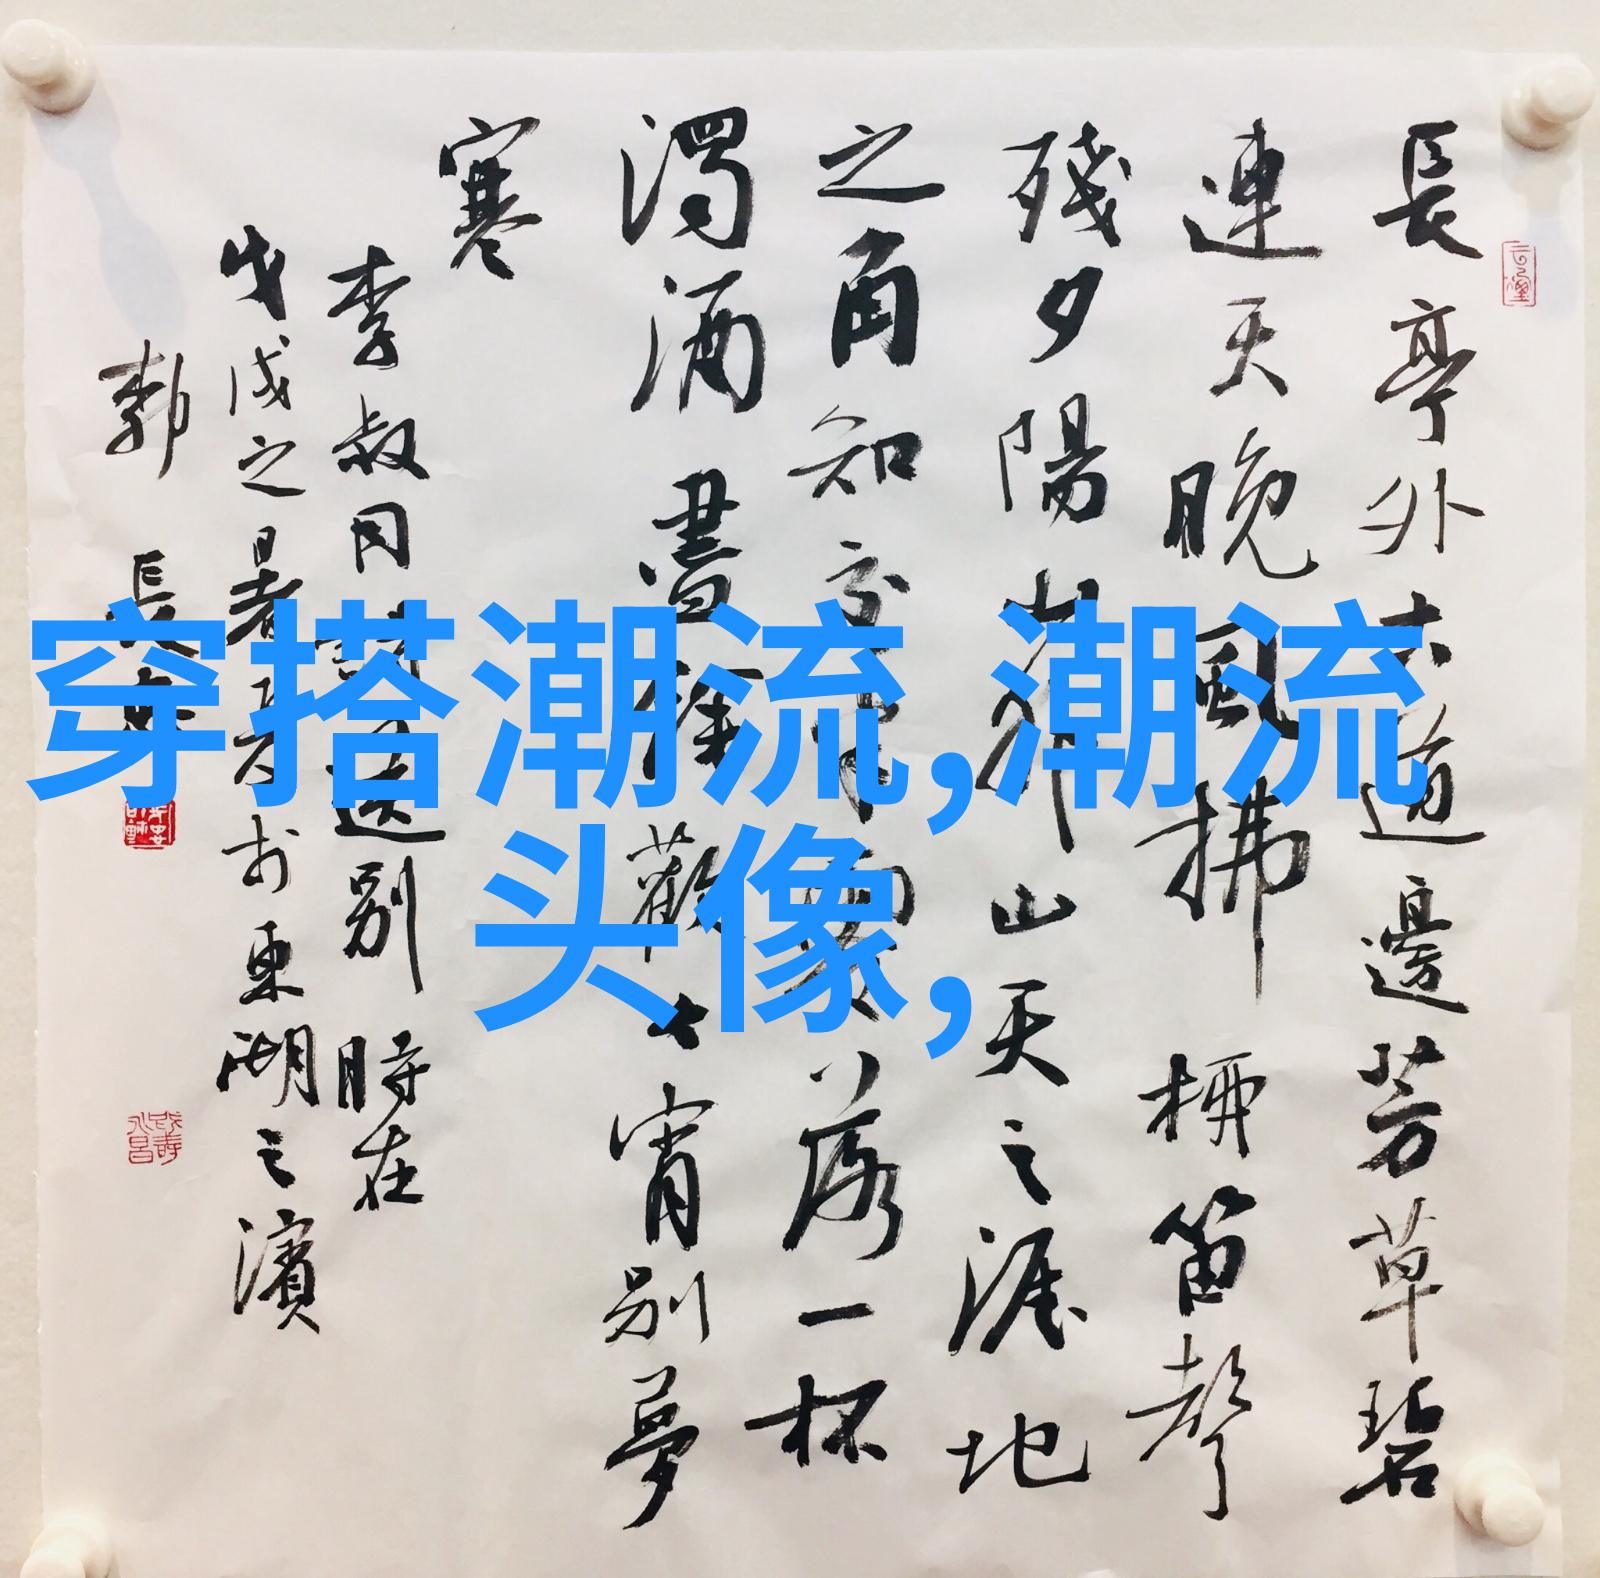 穿搭潮流,潮流
头像,
長亭外古道邊芳草碧
連天晚風拂柳笛聲
殘夕陽山外山天之涯地
之角知交半零落一杯
濁酒盡餘歡今宵別夢
寒
李叔同送別 時在
戊戌之暑於東湖之濱